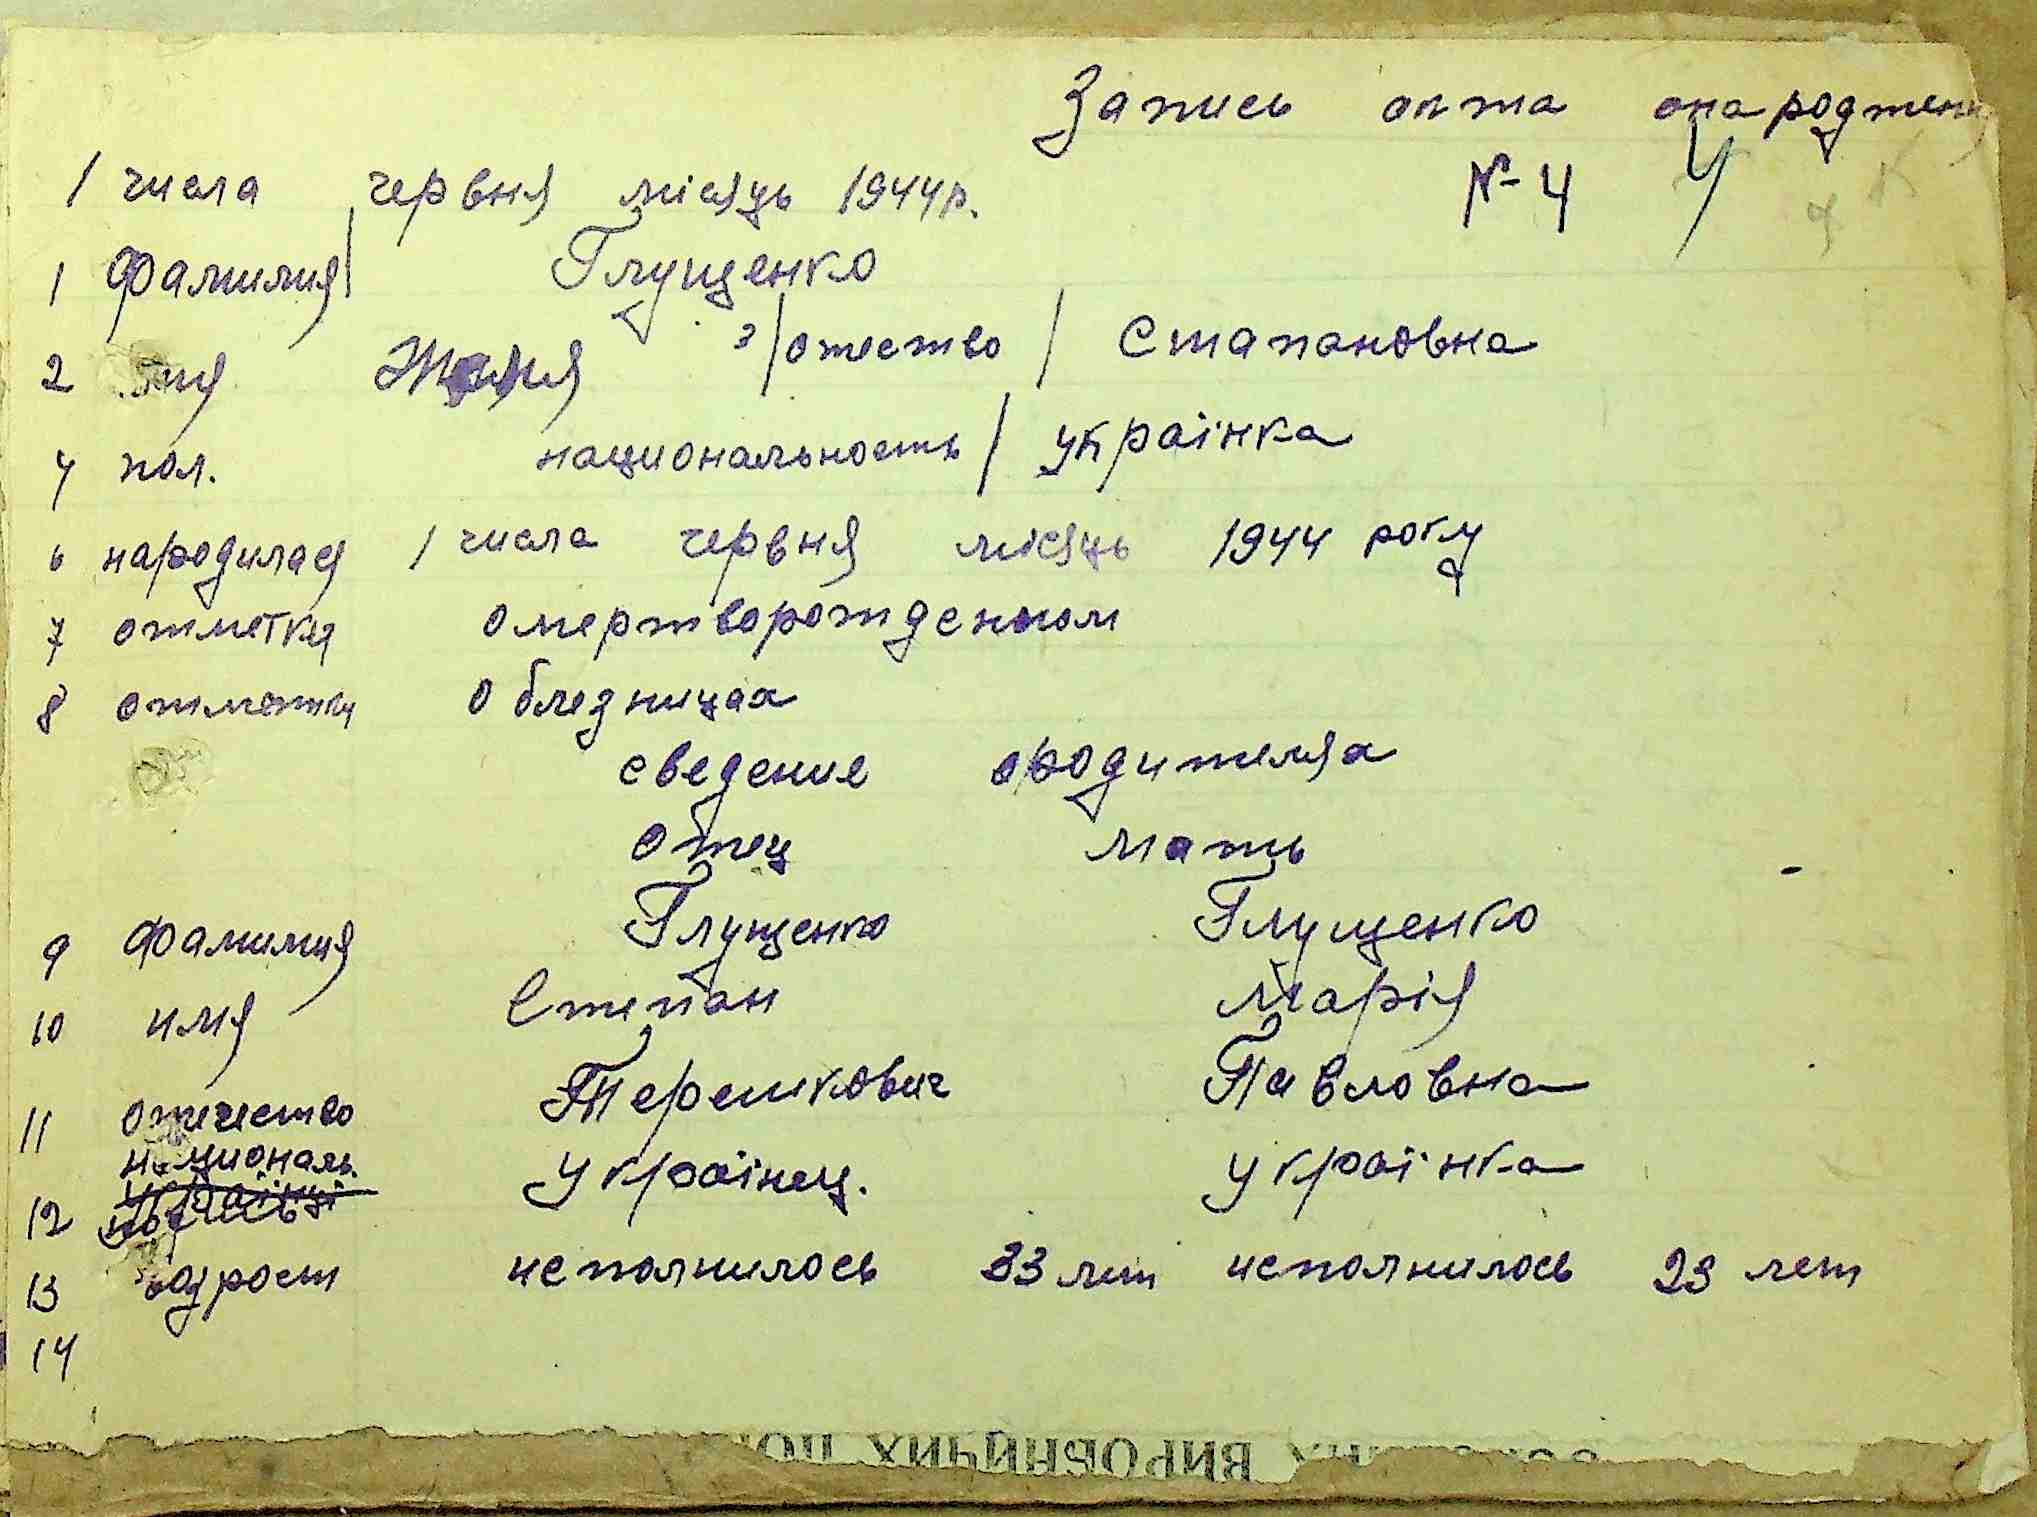 Запись акта онароджени
1 числа червня місяць 1944 р. №-4 4
1 Фамилия | Глущенко
2 имя 3 | отество | Стапановна
4 пол. национальность | українка
6 народилася 1 числа червня місяць 1944 року
7 отметка омертворожденном
8 отметки о блезницах
сведение ородителях
Отец Мать
9 Фамилия Глущенко Глущенко
10 имя Степан Марія
11 отечество Терешкович Павловна
националь.
12 Українец. Українка
13 возрост исполнилось 33 лет исполнилось 23 лет
14
ВИРОБНИЧИХ